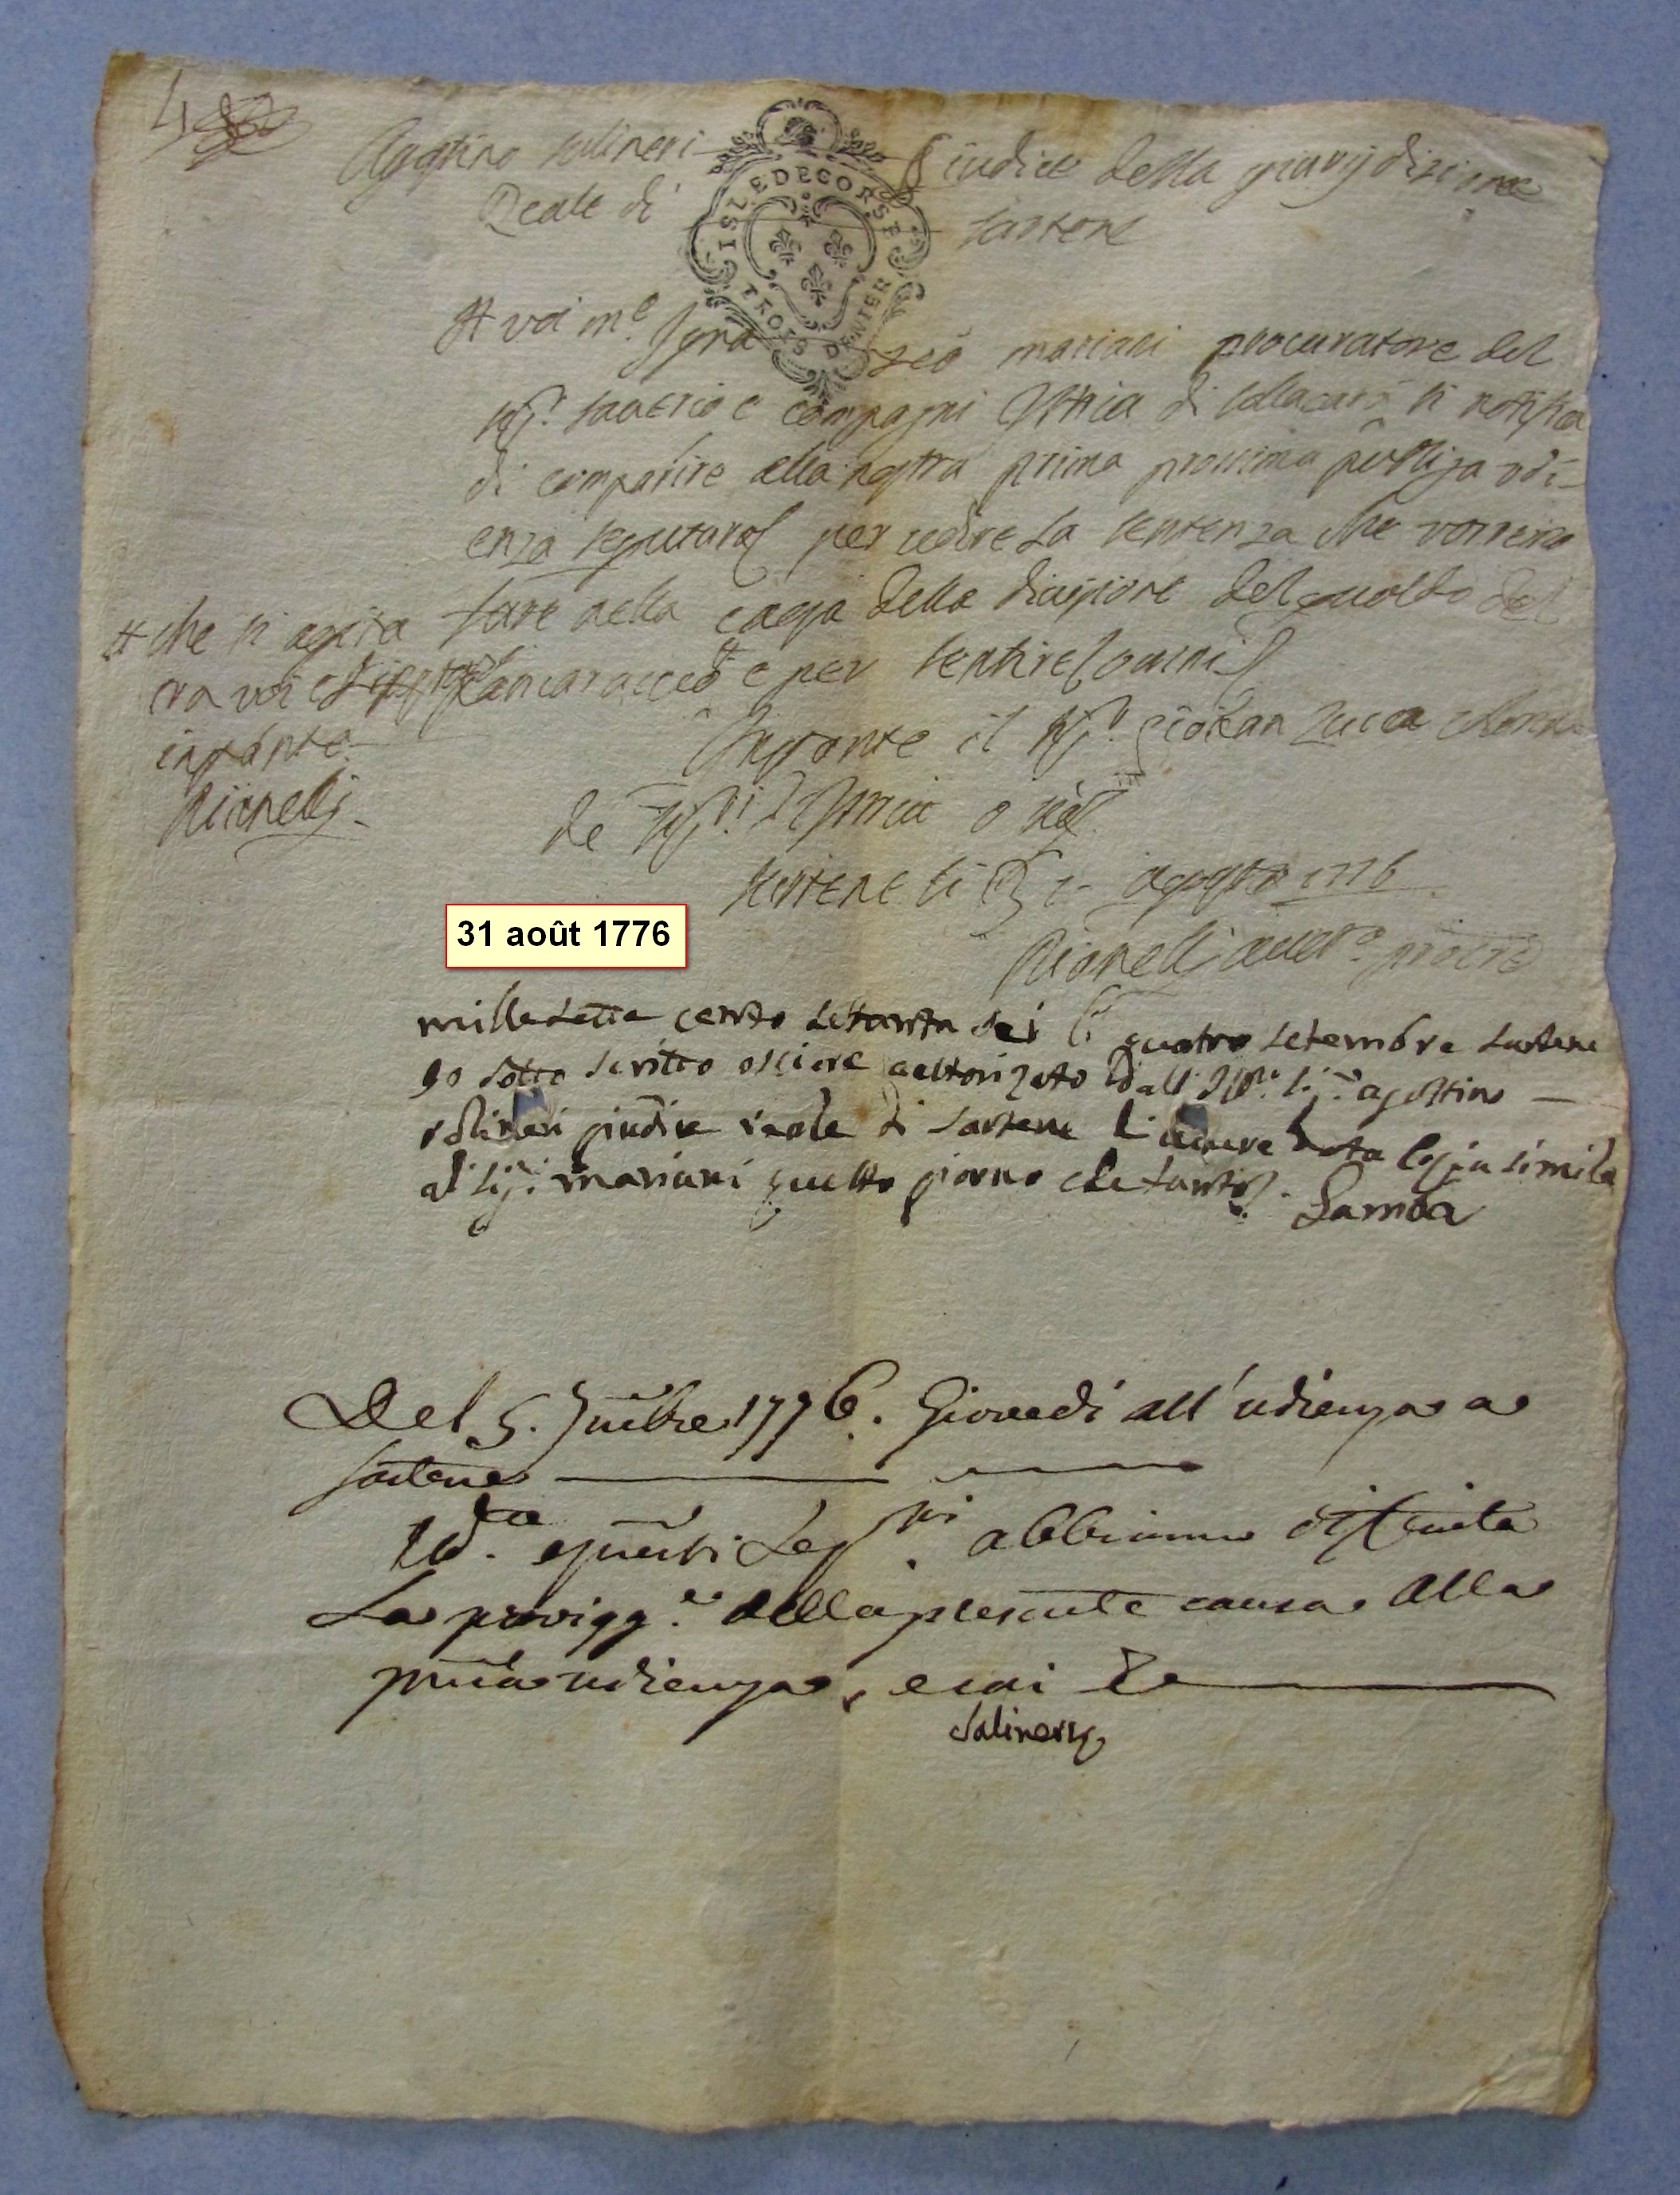 4
Agostino Salineri Giudice della giurisdizione
Reale di Sartene
ISLE DE CORSE
TROIS DENIER
A voi m.e Ignazeo mariani procuratore del
Sig.r Saverio e compagni Istria di Sollacarò si notifica
di comparire alla nostra prima prossima publiga udi-
enza per vedere la sentenza che vorremo
fare nella causa della divisione del del
e per sentire
che si agita
tra voi
instante
Rionelj
Instante il Sig.r Giovan Luca
de Sig.ri d'Istria o
Sartene li 31 agosto 1776
Rionelj
31 août 1776
mille sette cento settanta sei li quatro setembre Sartene
Io sotto scritto osciere auttorizato dall' Ill.e Sig.r agostino
salineri giudice reale di Sartene li avere data copia simile
al Sig.r mariani quello giorno Lamba
Del 5. 7mbre 1776. Giovedì all'udienza a
Sartene
Ud.ta abbiamo
La provigg.e della presente causa alla
prima udienza, e così
Salinery